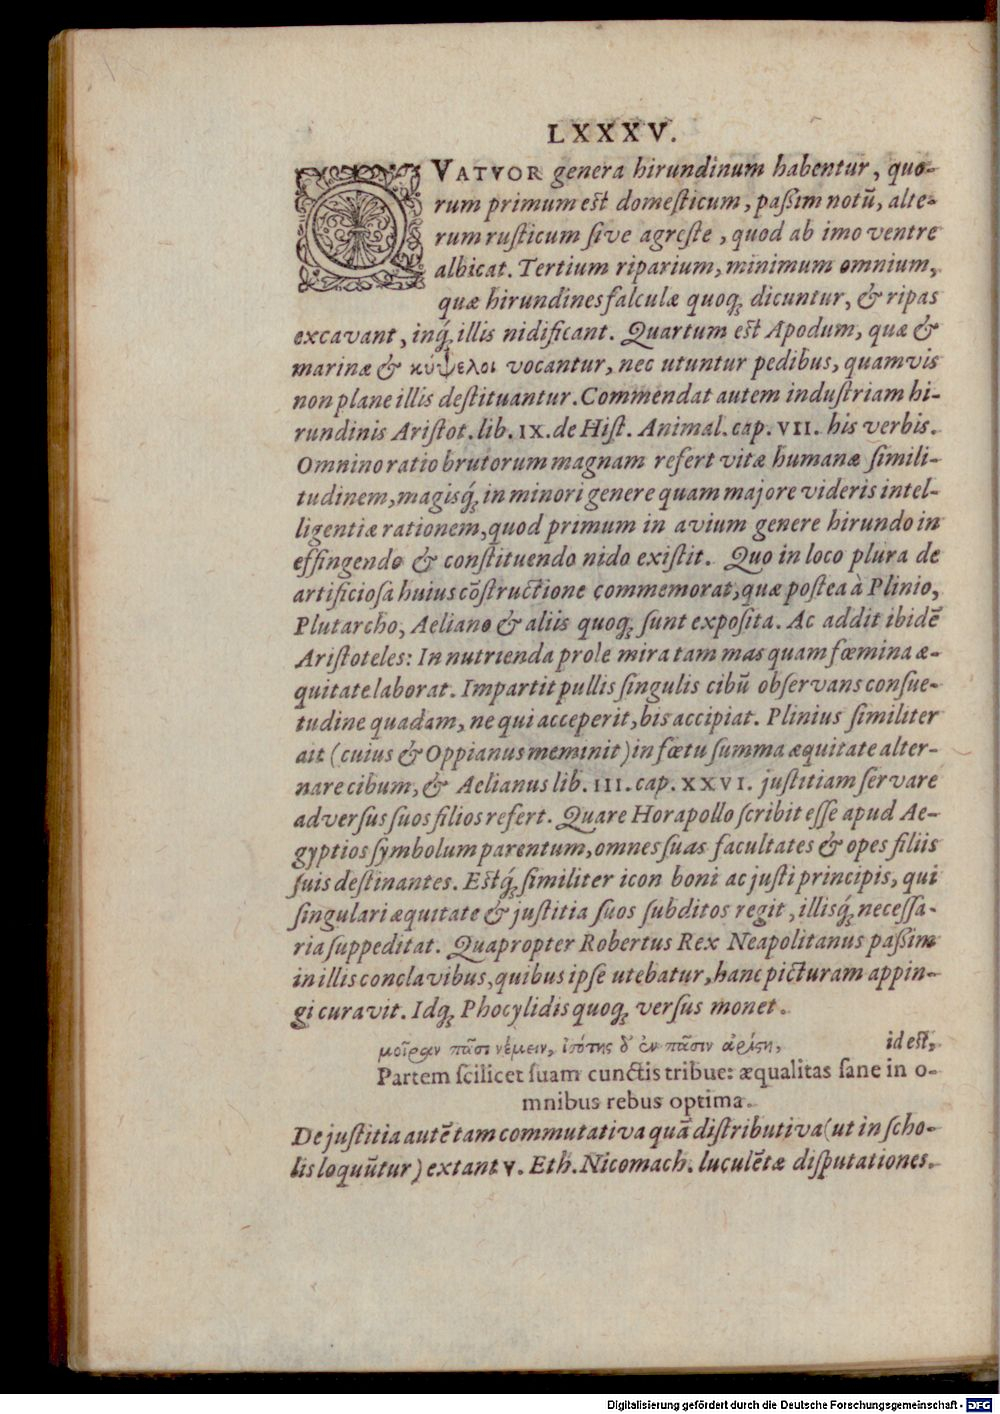 LXXXV.
QVATVOR genera hirundinum habentur, quo-
rum primum est domesticum, paßim notũ, alte-
rum rusticum sive agreste, quod ab imo ventre
albicat. Tertium riparium, minimum omnium,
quæ hirundines falculæ quoq; dicuntur, & ripas
excavant, inq́; illis nidificant. Quartum est Apodum, quæ &
marinæ & κύψελοι vocantur, nec utuntur pedibus, quamvis
non plane illis destituantur. Commendat autem industriam hi-
rundinis Aristot. lib. IX. de Hist. Animal. cap. VII. his verbis.
Omnino ratio brutorum magnam refert vitæ humanæ simili-
tudinem, magisq́; in minori genere quam majore videris intel-
ligentiæ rationem, quod primum in avium genere hirundo in
effingendo & constituendo nido existit. Quo in loco plura de
artificiosa huius cõstructione commemorat, quæ postea à Plinio,
Plutarcho, Aeliano & aliis quoq; sunt exposita. Ac addit ibidẽ
Aristoteles: In nutrienda prole mira tam mas quam fœmina æ-
quitate laborat. Impartit pullis singulis cibũ observans consue-
tudine quadam, ne qui acceperit, bis accipiat. Plinius similiter
ait (cuius & Oppianus meminit) in fœtu summa æquitate alter-
nare cibum, & Aelianus lib. III. cap. XXVI. justitiam servare
adversus suos filios refert. Quare Horapollo scribit esse apud Ae-
gyptios symbolum parentum, omnes suas facultates & opes filiis
suis destinantes. Estq́; similiter icon boni ac justi principis, qui
singulari æquitate & justitia suos subditos regit, illisq́; necessa-
ria suppeditat. Quapropter Robertus Rex Neapolitanus paßim
in illis conclavibus, quibus ipse utebatur, hanc picturam appin-
gi curavit. Idq; Phocylidis quoq; versus monet.
μοῖραν πᾶσι νέμειν, ἰσότης δ' ἐν πᾶσιν ἀρίςη, id est,
Partem scilicet suam cunctis tribue: æqualitas sane in o-
mnibus rebus optima.
De justitia autẽ tam commutativa quã distributiva (ut in scho-
lis loquũtur) extant v. Eth. Nicomach. luculẽtæ disputationes.
Digitalisierung gefördert durch die Deutsche Forschungsgemeinschaft - DFG